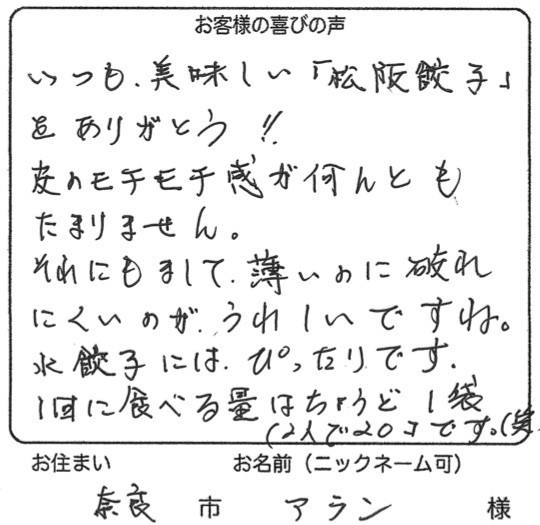 お客様の喜びの声
いつも、美味しい「松阪餃子」
をありがとう!!
皮のモチモチ感が何んとも
たまりません。
それにもまして、薄いのに破れ
にくいのが、うれしいですね。
水餃子には、ぴったりです。
1回に食べる量はちょうど1袋
(2人で20コです。(笑
お住まい お名前(ニックネーム可)
奈良 市 アラン 様